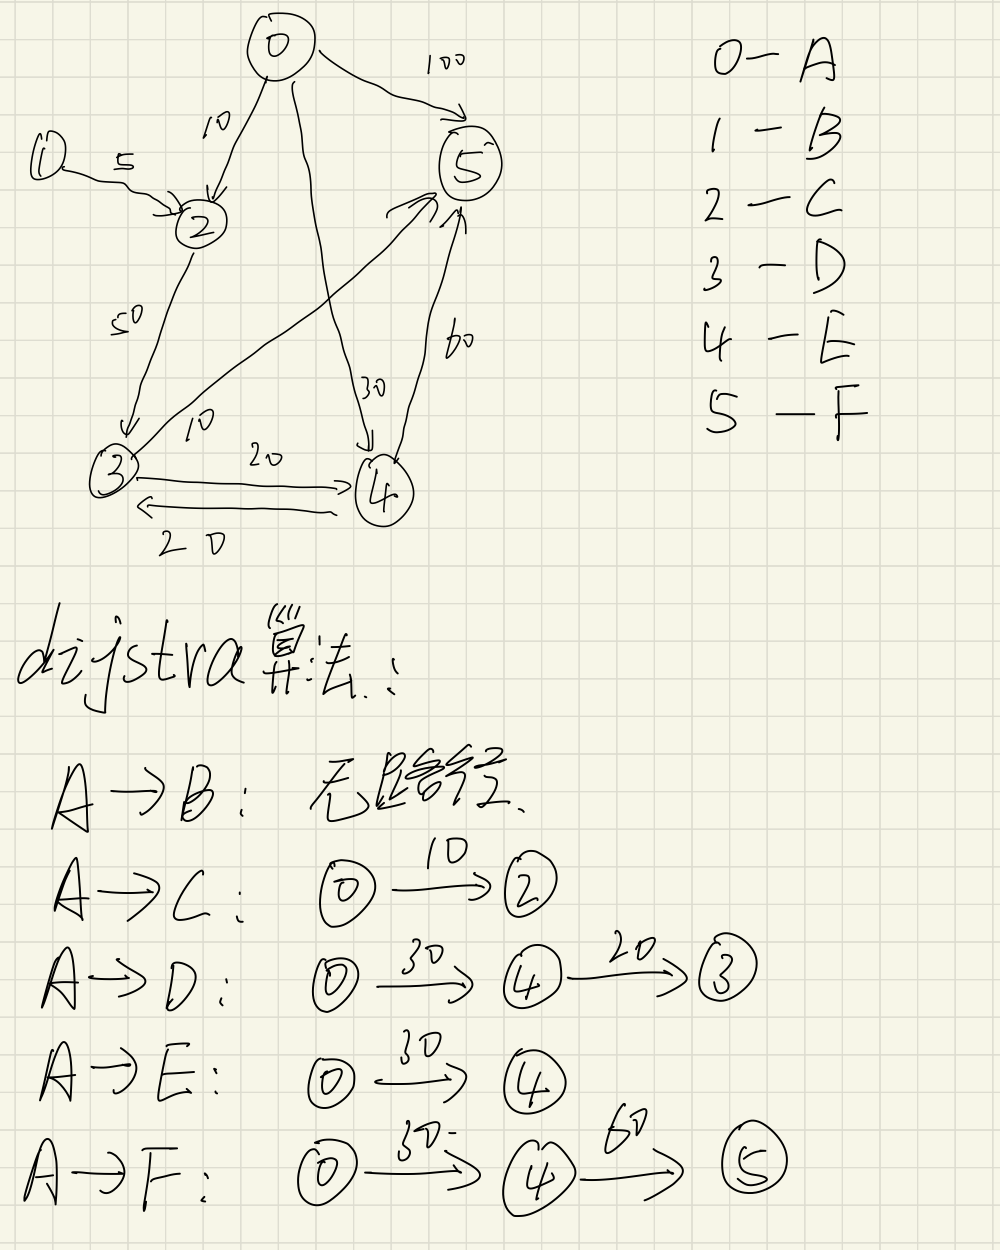 0
100
0-A
10
1
5
5
1-B
2
2-C
50
3-D
60
4-E
30
10
5-F
20
3
4
20
dijstra算法:
A→B: 无路径.
A→C: 0 10→ 2
A→D: 0 30→ 4 20→ 3
A→E: 0 30→ 4
A→F: 0 30→ 4 60→ 5